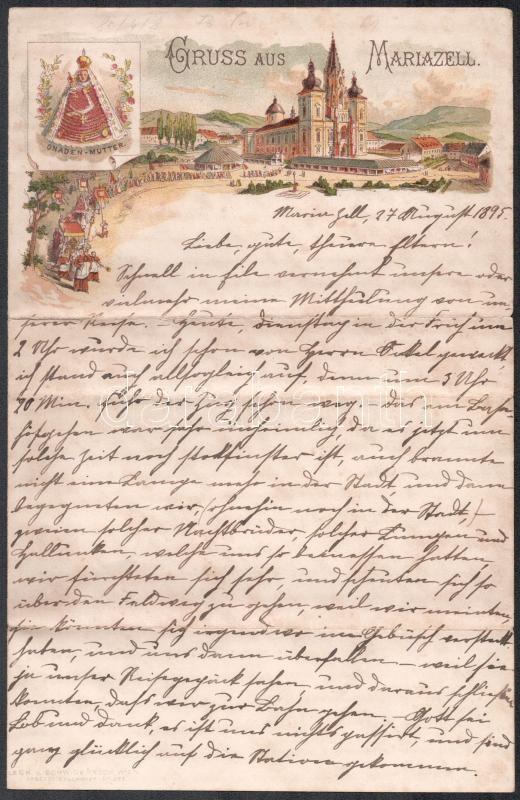 GRUSS AUS MARIAZELL.
GNADEN-MUTTER.
Maria Zell, 27 August 1895.
Liebe, gute, theure Eltern!
Schnell in Eile vernehmt unsere oder
vielmehr meine Mittheilung von un-
serer Reise. – Heute, Dienstag in der Früh um
2 Uhr wurde ich schon von Herrn geweckt,
ich stand auch allsogleich auf, denn um 3 Uhr
20 Min. fuhr der Zug schon weg. – Das am Bahn-
hofgehen war sehr unheimlich, da es jetzt um
solche Zeit noch stockfinster ist, auch brannte
nicht eine Lampe mehr in der Stadt und dann
begegneten wir, (ohnehin noch in der Stadt)
zweien solcher Nachtbrüder, solcher Lumpen und
Hallunken, welche uns so bemessen hatten,
wir fürchteten sich sehr, und scheuten sich so
über den Feldweg zu gehen, weil wir meinten,
sie könnten sich irgendwo im Gebüsch versteckt
haben, und uns dann überfallen – weil sie
ja unser Reisegepäck sahen, und daraus schließen
konnten, dass wir zur Bahn gehen. – Gott sei
Lob und Dank, es ist uns nichts passirt, und sind
ganz glücklich auf die Station gekommen.
databanth